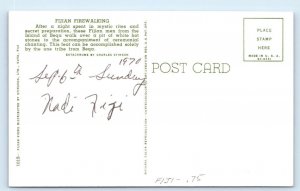 FIJIAN FIREWALKING
After a night spent in mystic rites and
secret preparation, these Fijian men from the
island of Beqa walk over a pit of white hot
stones to the accompaniment of ceremonial
chanting. This feat can be accomplished solely
by the one tribe from Beqa.
1970
Sept 6th Sunday
Nadi Fiji
POST CARD
PLACE
STAMP
HERE
FIJI - .75